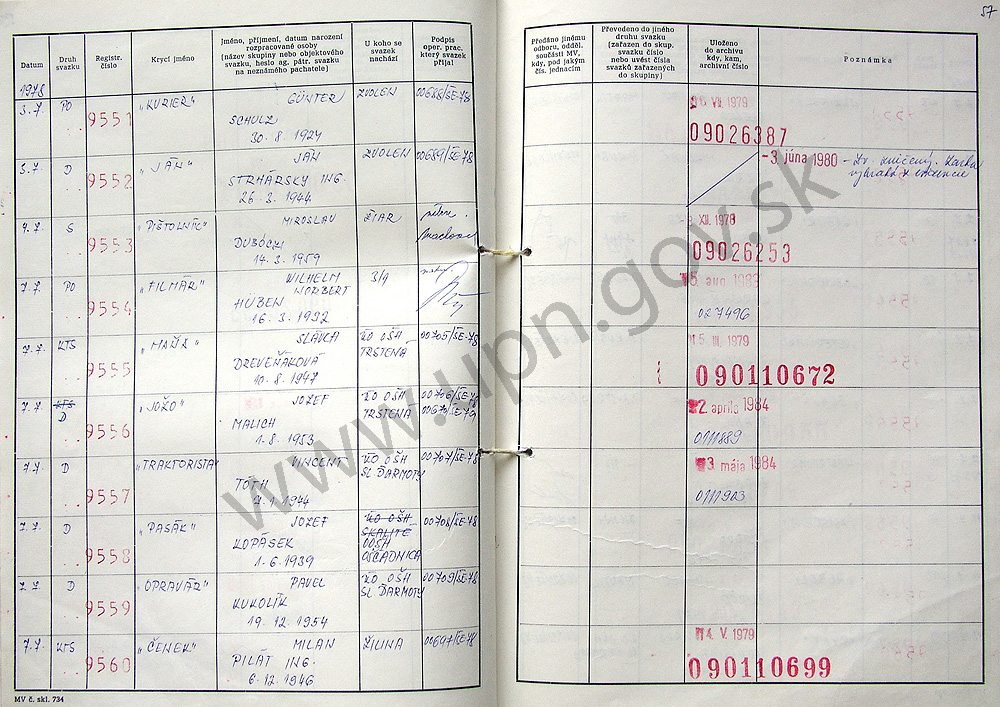 57
Datum
Druh svazku
Registr. číslo
Krycí jméno
Jméno, příjmení, datum narození
rozpracované osoby
(název skupiny nebo objektového
svazku, heslo ag. pátr. svazku
na neznámého pachatele)
U koho se
svazek
nachází
Podpis
oper. prac.
který svazek
přijal
Předáno jinému
odboru, odděl.
součásti MV,
kdy, pod jakým
čís. jednacím
Převedeno do jiného
druhu svazku
(zařazen do skup.
svazku číslo
nebo uvést čísla
svazků zařazených
do skupiny)
Uloženo
do archivu
kdy, kam,
archivní číslo
Poznámka
1978
3.7. PO 9551 "KURIER" GÜNTER ZVOLEN 00688/ŠE-78
SCHULZ
30.8.1924
VII. 1979
09026387
3.7. D 9552 "JÁN" JÁN ZVOLEN 00689/ŠE-78
STRHÁRSKY ING.
26.3.1944
-3. júna 1980 - zničený.
9553 "PIŠTOLNÍK" MIROSLAV ŽIAR
DUBÓCKI
14.3.1959
XII. 1978
09026253
7.7. PO 9554 "FILMÁR" WILHELM
NORBERT
HUBEN
16.3.1932
aug 1983
027496
7.7. KTS 9555 SLÁVKA KO OŠH 00705/ŠE-78
DREVEŇÁKOVÁ TRSTENÁ
10.8.1947
5. III. 1979
090110672
7.7. KTS 9556 "JOŽO" JOZEF KO OŠH 00706/ŠE-78
D MALICH TRSTENÁ
1.8.1953
2. apríla 1984
0111889
7.7. D 9557 "TRAKTORISTA" VINCENT KO OŠH 00707/ŠE-78
TÓTH SL. ĎARMOTY
1944
3. mája 1984
0111903
7.7. D 9558 "PASÁK" JOZEF KO OŠH 00708/ŠE-78
KOPÁSEK SKALITÉ
1.6.1939 OOŠH
OŠČADNICA
7.7. D 9559 "OPRAVÁR" PAVEL KO OŠH 00709/ŠE-78
KUKOLÍK SL. ĎARMOTY
19.12.1954
7.7. KTS 9560 "ČENEK" MILAN ŽILINA 00697/ŠE-78
PILÁT ING.
6.12.1946
4. V. 1979
090110699
MV č. skl. 734
www.upn.gov.sk